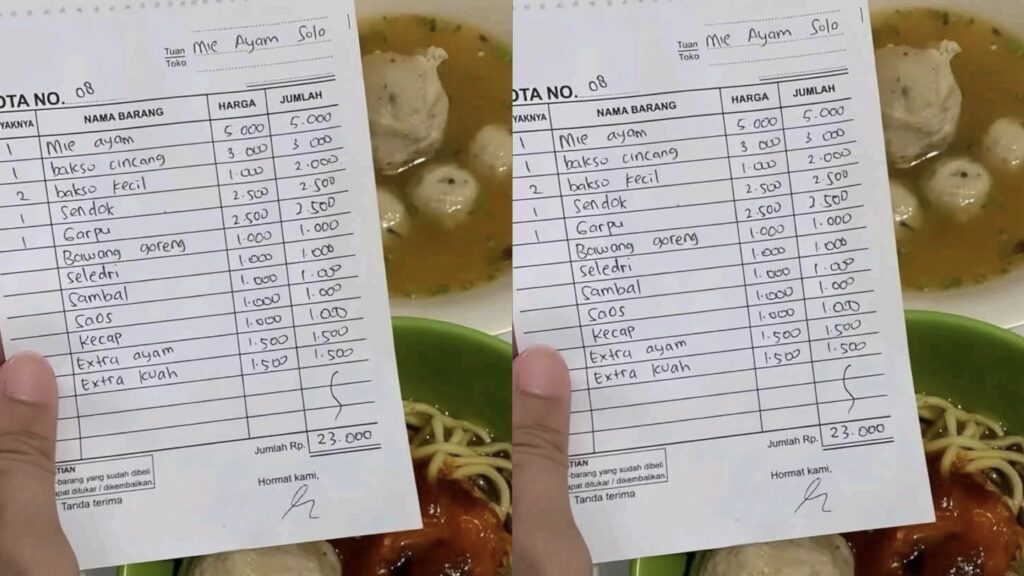 Tuan Mie Ayam Solo
Toko
OTA NO. 08
YAKNYA NAMA BARANG HARGA JUMLAH
1 Mie ayam 5.000 5.000
1 bakso cincang 3.000 3.000
2 bakso kecil 1.000 2.000
1 Sendok 2.500 2.500
1 Garpu 2.500 2.500
Bawang goreng 1.000 1.000
Seledri 1.000 1.000
Sambal 1.000 1.000
Saos 1.000 1.000
Kecap 1.000 1.000
Extra ayam 1.500 1.500
Extra kuah 1.500 1.500
Jumlah Rp. 23.000
TIAN
-barang yang sudah dibeli
apat ditukar / dikembalikan.
Tanda terima
Hormat kami,
Tuan Mie Ayam Solo
Toko
OTA NO. 08
YAKNYA NAMA BARANG HARGA JUMLAH
1 Mie ayam 5.000 5.000
1 bakso cincang 3.000 3.000
2 bakso kecil 1.000 2.000
1 Sendok 2.500 2.500
1 Garpu 2.500 2.500
Bawang goreng 1.000 1.000
Seledri 1.000 1.000
Sambal 1.000 1.000
Saos 1.000 1.000
Kecap 1.000 1.000
Extra ayam 1.500 1.500
Extra kuah 1.500 1.500
Jumlah Rp. 23.000
TIAN
-barang yang sudah dibeli
apat ditukar / dikembalikan.
Tanda terima
Hormat kami,